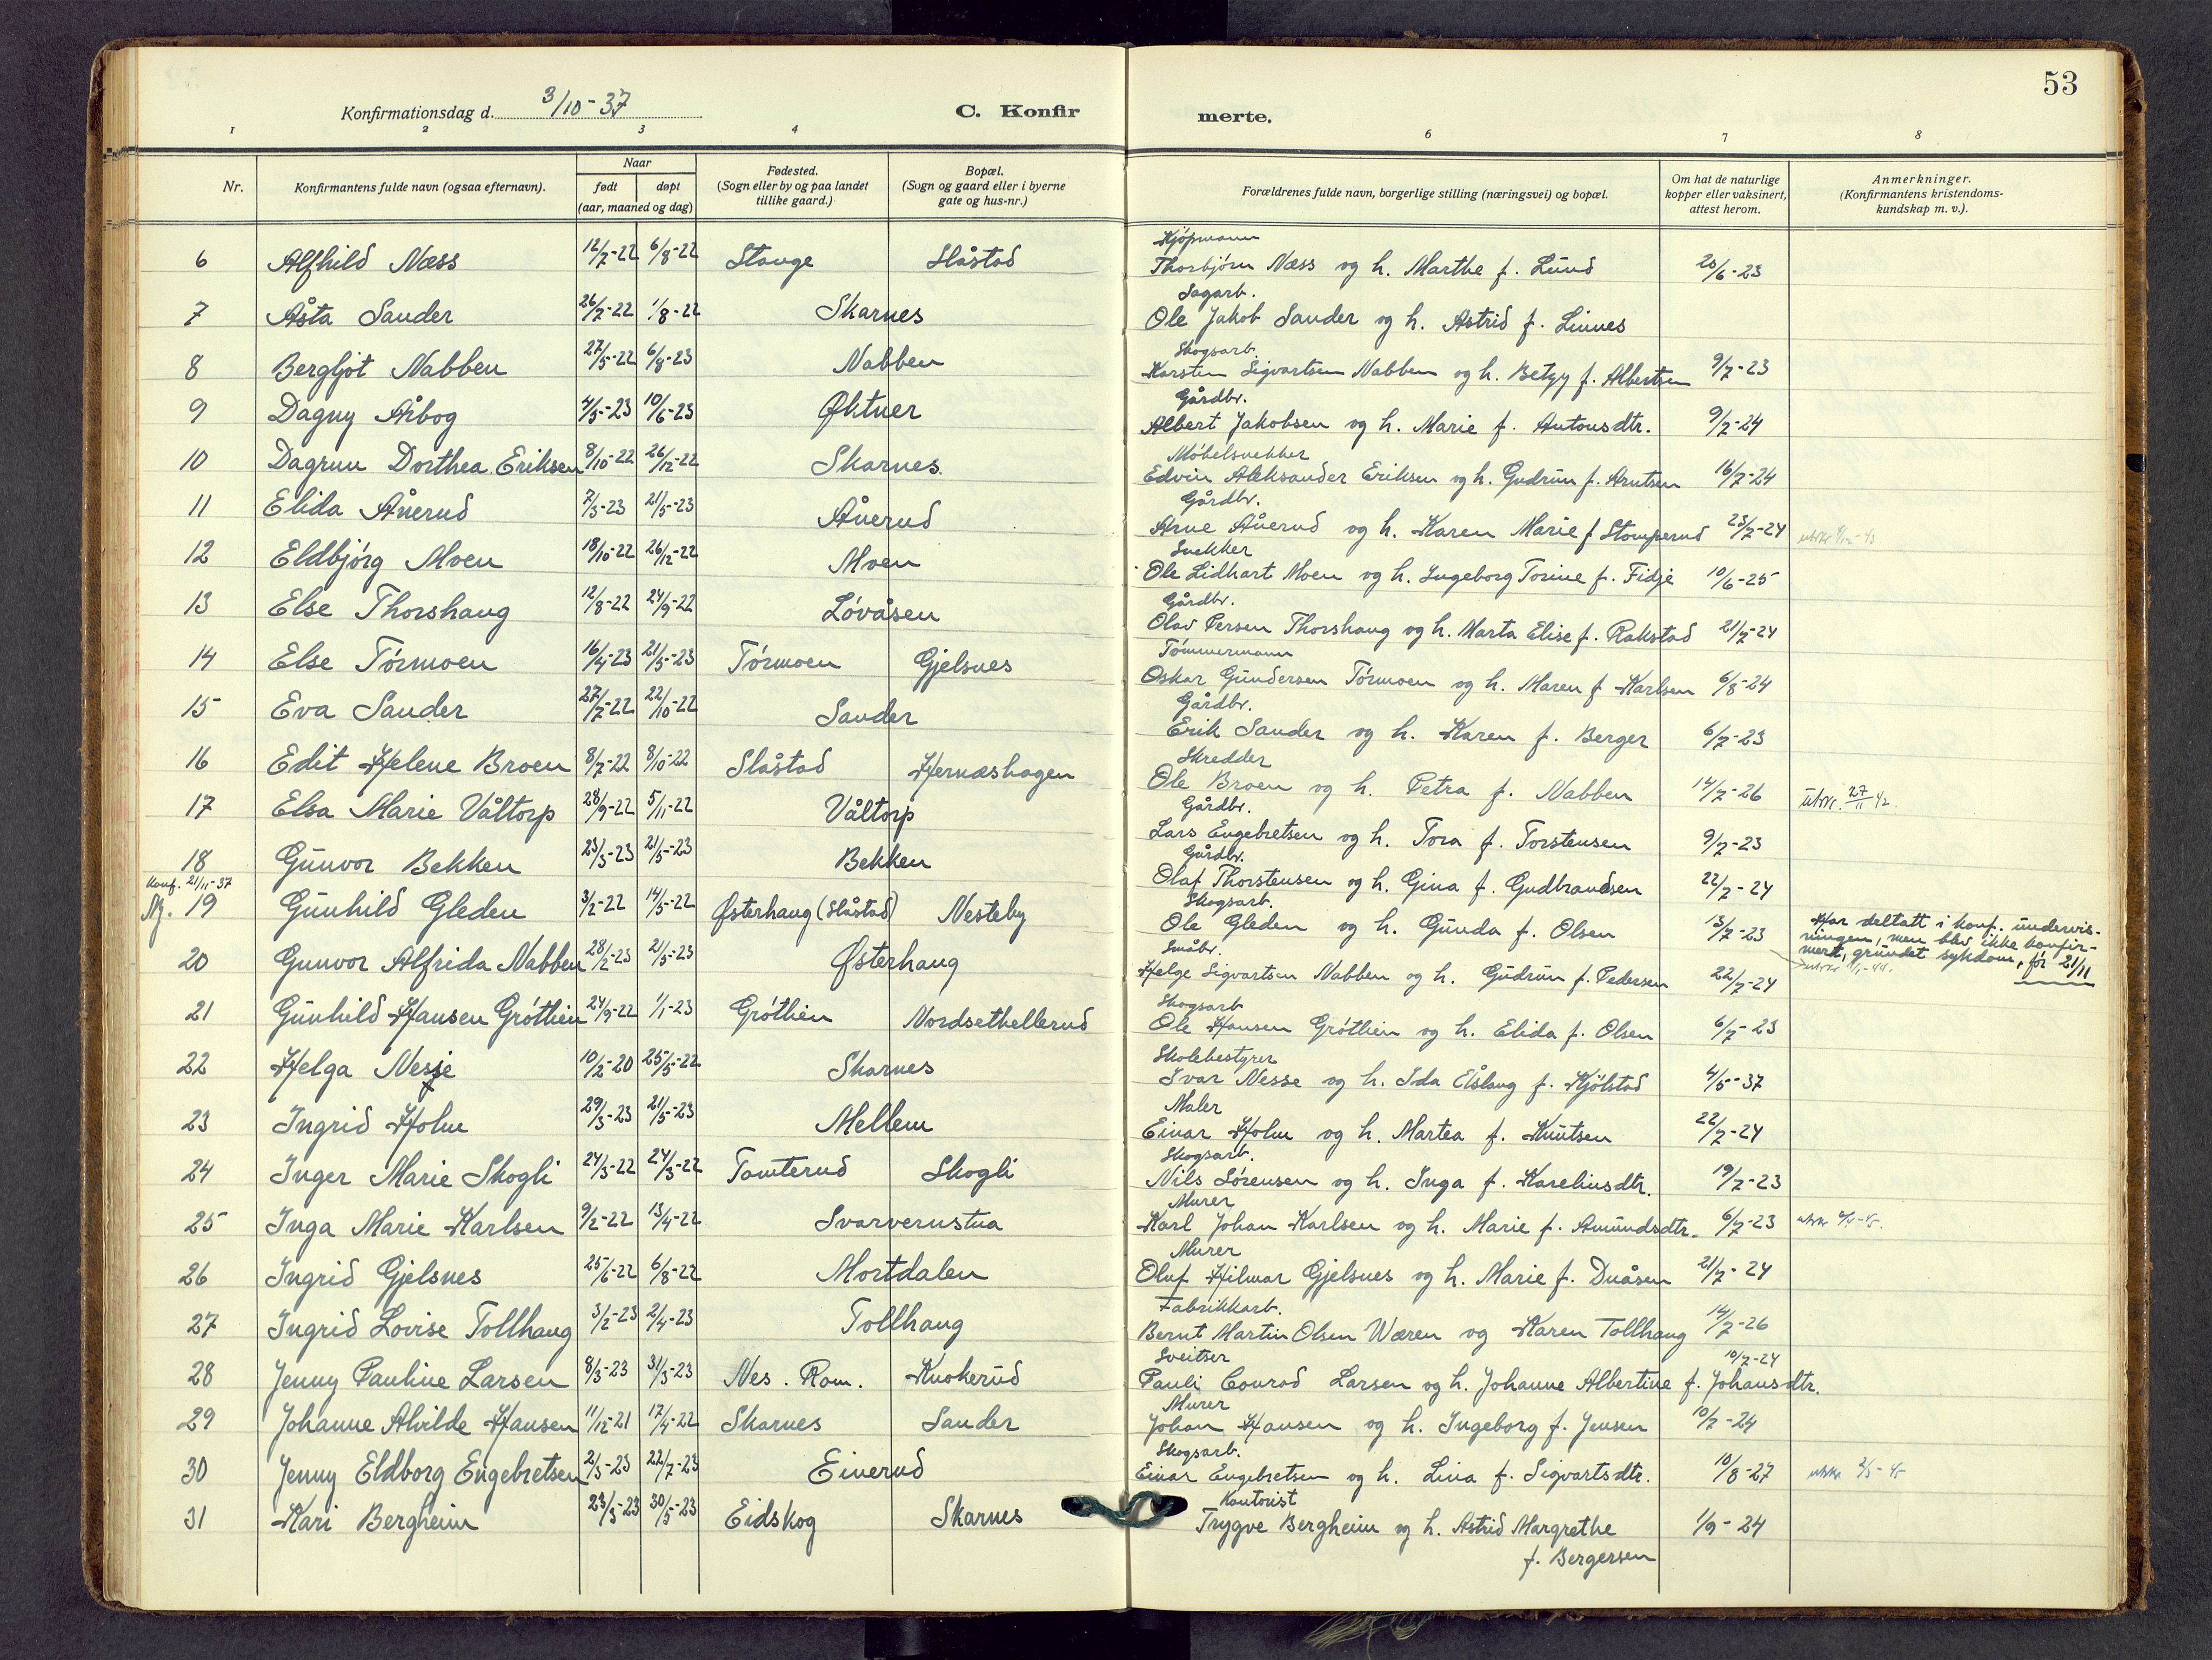 53
Konfirmationsdag d. 3/10-37
C. Konfir
merte.
1 2 3 4 6 7 8
Nr.
Konfirmantens fulde navn (ogsaa efternavn).
Naar
født døpt
(aar, maaned og dag)
Fødested.
(Sogn eller by og paa landet
tillike gaard.)
Bopæl.
(Sogn og gaard eller i byerne
gate og hus-nr.)
Forældrenes fulde navn, borgerlige stilling (næringsvei) og bopæl.
Om hat de naturlige
kopper eller vaksinert,
attest herom.
Anmerkninger.
(Konfirmantens kristendoms-
kundskap m. v.).
Kjøpmann
6 Alfhild Næss 12/7-22 6/8-22 Stange Slåstad Thorbjørn Næss og h. Marthe f. Lund 20/6-23
Sagarb.
7 Åsta Sander 26/7-22 1/8-22 Skarnes Ole Jakob Sander og h. Astrid f. Linnes
Skogsarb.
8 Bergljot Nabben 27/5-22 6/8-23 Nabben Karsten Sigvartsen Nabben og h. Betzy f. Albertsen 9/7-23
Gårdbr.
9 Dagny Årbog 4/5-23 10/6-23 Øktner Albert Jakobsen og h. Marie f. Antonsdtr. 9/7-24
Møbelsnekker
10 Dagrun Dorthea Eriksen 8/10-22 26/12-22 Skarnes. Edvin Aleksander Eriksen og h. Gudrun f. Arntsen 16/7-24
Gårdbr.
11 Elida Ånerud 7/3-23 21/5-23 Ånerud Arne Ånerud og h. Karen Marie f Stomperud 23/7-24
Snekker
12 Eldbjørg Moen 18/10-22 26/12-22 Moen Ole Lidhart Moen og h. Ingeborg Torine f. Fidje 10/6-25
Gårdbr.
13 Else Thorshaug 12/8-22 24/9-22 Løvåsen Olav Persen Thorshaug og h. Marta Elise f. Rakstad 21/7-24
Tømmermann
14 Else Tørmoen 16/4-23 21/5-23 Tørmoen Gjelsnes Oskar Gundersen Tørmoen og h. Maren f Karlsen 6/8-24
Gårdbr.
15 Eva Sander 27/7-22 22/10-22 Sander Erik Sander og h. Karen f. Berger 6/7-23
Skredder
16 Edit Helene Broen 8/7-22 8/10-22 Slåstad Hernæshagen Ole Broen og h. Petra f. Nabben 14/7-26 utskr. 27/11 42.
Gårdbr.
17 Elsa Marie Våltorp 28/9-22 5/11-22 Våltorp Lars Engebretsen og h. Tora f. Torstensen 9/7-23
Gårdbr.
18 Gunvor Bekken 23/3-23 21/5-23 Bekken Olaf Thorstensen og h. Gina f. Gudbrandsen 22/7-24
Konf. 21/11-37
Skogsarb.
19 Gunhild Gleden 3/2-22 14/5-22 Østerhaug (Slåstad) Nesteby Ole Gleden og h. Gunda f. Olsen 13/7-23 Har deltatt i konf. undervis-
ningen, men blev ikke konfir-
mert, grundet sykdom, før 21/11
Småbr.
20 Gunvor Alfrida Nabben 28/2-23 21/5-23 Østerhaug Helge Sigvartsen Nabben og h. Gudrun f. Pedersen 22/7-24
Skogsarb
21 Gunhild Hansen Grøthien 24/9-22 1/1-23 Grøthien Nordsethellerud Ole Hansen Grøthien og h. Elida f. Olsen 6/7-23
Skolebestyrer
22 Helga Nesse 10/2-20 25/5-22 Skarnes Ivar Nesse og h. Ida Elslaug f. Kjølstad 4/5-37
Maler
23 Ingrid Holm 29/3-23 21/5-23 Mellem Einar Holm og h. Martea f. Knutsen 22/7-24
Skogsarb.
24 Inger Marie Skogli 24/3-22 24/3-22 Tomterud Skogli Nils Sørensen og h. Inga f. Kareliusdtr. 19/7-23
Murer
25 Inga Marie Karlsen 9/2-22 13/4-22 Svarverustua Karl Johan Karlsen og h. Marie f. Amundsdtr. 6/7-23
Murer
26 Ingrid Gjelsnes 25/6-22 6/8-22 Mortdalen Oluf Hilmar Gjelsnes og h. Marie f. Duåsen 21/7-24
Fabrikkarb.
27 Ingrid Lovise Tollhaug 3/2-23 2/4-23 Tollhaug Bernt Martin Olsen Wæren og Karen Tollhaug 14/7-26
Sveitser
28 Jenny Pauline Larsen 8/3-23 31/3-23 Nes. Rom. Knokerud Pauli Conrad Larsen og h. Johanne Albertine f. Johansdtr. 10/7-24
Murer
29 Johanne Alvilde Hansen 11/12-21 17/4-22 Skarnes Sander Johan Hansen og h. Ingeborg f. Jensen 10/7-24
Skogsarb.
30 Jenny Eldborg Engebretsen 2/3-23 22/7-23 Einerud Einar Engebretsen og h. Lina f. Sigvartsdtr. 10/8-27
Kontorist
31 Kari Bergheim 23/3-23 30/5-23 Eidskog Skarnes Trygve Bergheim og h. Astrid Margrethe 1/9-24
f. Bergersen